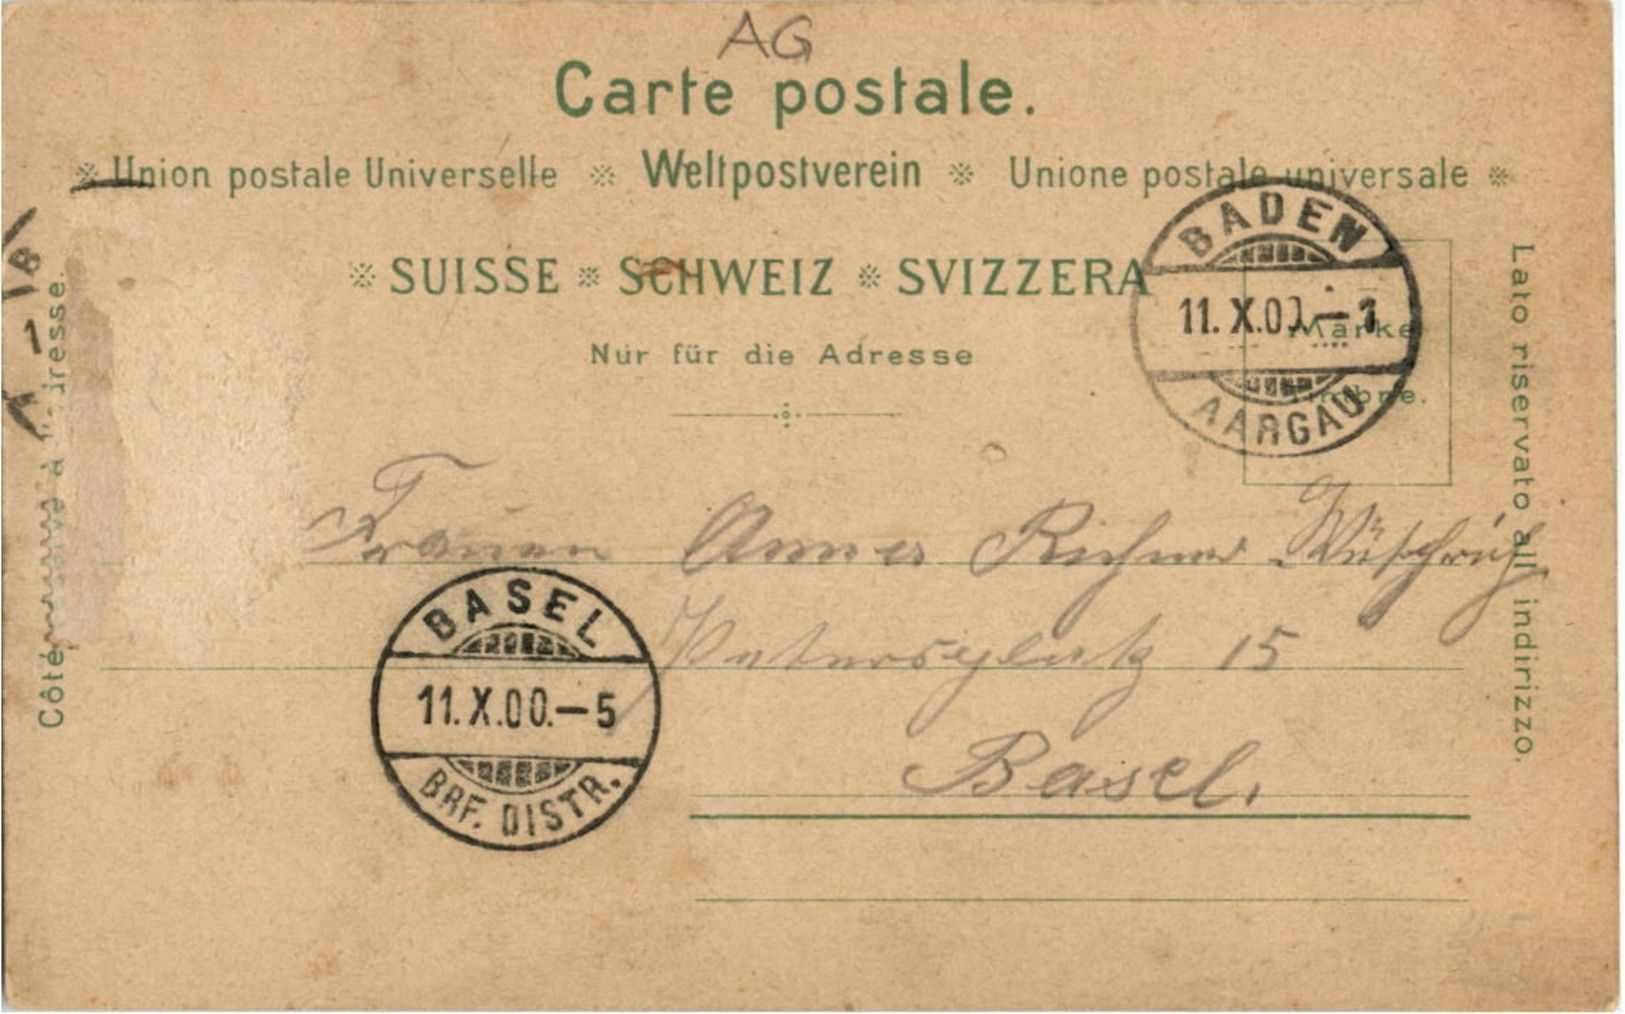 AG
Carte postale.
Union postale Universelle Weltpostverein Unione postale universale
SUISSE SCHWEIZ SVIZZERA
Nur für die Adresse
BADEN
11.X.00.–1
AARGAU
Marke
Lato riservato all indirizzo.
Côté à
Richner
Petersplatz 15
Basel.
BASEL
11.X.00.–5
BRF. DISTR.